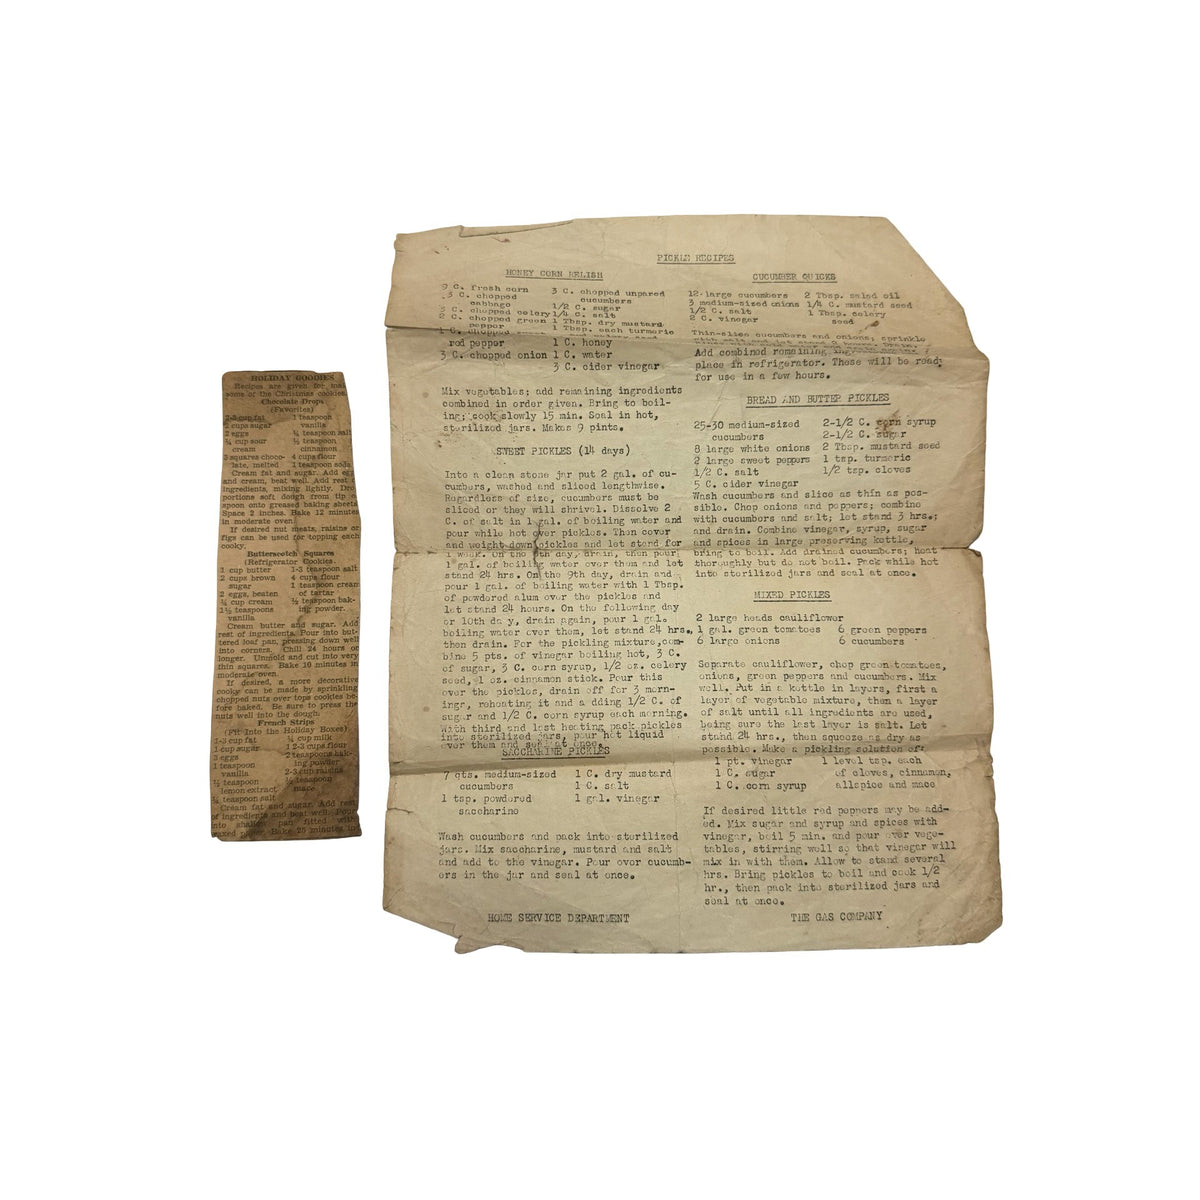 HOLIDAY GOODIES
Recipes are given for
some of the Christmas cookies.
Chocolate Drops
(Favorites)
2-3 cup fat
2 cups sugar
2 eggs
¾ cup sour
cream
3 squares choco-
late, melted
1 teaspoon
vanilla
¼ teaspoon salt
½ teaspoon
cinnamon
4 cups flour
1 teaspoon soda
Cream fat and sugar. Add egg
and cream, beat well. Add rest
ingredients, mixing lightly. Drop
portions soft dough from tip
spoon onto greased baking sheets
Space 2 inches. Bake 12 minutes
in moderate oven.
If desired nut meats, raisins or
figs can be used for topping each
cooky.
Butterscotch Squares
(Refrigerator Cookies.
1 cup butter
2 cups brown
sugar
2 eggs, beaten
¼ cup cream
1½ teaspoons
vanilla
1-3 teaspoon salt
4 cups flour
1 teaspoon cream
of tartar
½ teaspoon bak-
ing powder.
Cream butter and sugar. Add
rest of ingredients. Pour into but-
tered loaf pan, pressing down well
into corners. Chill 24 hours or
longer. Unmold and cut into very
thin squares. Bake 10 minutes in
moderate oven.
If desired, a more decorative
cooky can be made by sprinkling
chopped nuts over tops cookies be-
fore baked. Be sure to press the
nuts well into the dough.
French Strips
(Fit Into the Holiday Boxes)
1-3 cup fat
1 cup sugar
3 eggs
1 teaspoon
vanilla
½ teaspoon
lemon extract
¼ teaspoon salt
¼ cup milk
1 2-3 cups flour
2 teaspoons bak-
ing powder
2-3 cup raisins
½ teaspoon
mace
Cream fat and sugar. Add rest
of ingredients and beat well. Pour
into shallow pan fitted with
waxed paper. Bake 25 minutes in
PICKLE RECIPES
HONEY CORN RELISH
9 C. fresh corn
3 C. chopped
cabbage
3 C. chopped celery
2 C. chopped green
pepper
1 C. chopped
red pepper
3 C. chopped onion
3 C. chopped unpared
cucumbers
1/2 C. sugar
1/4 C. salt
1 Tbsp. dry mustard
1 Tbsp. each turmeric
1 C. honey
1 C. water
3 C. cider vinegar
Mix vegetables; add remaining ingredients
combined in order given. Bring to boil-
ing; cook slowly 15 min. Seal in hot,
sterilized jars. Makes 9 pints.
SWEET PICKLES (14 days)
Into a clean stone jar put 2 gal. of cu-
cumbers, washed and sliced lengthwise.
Regardless of size, cucumbers must be
sliced or they will shrivel. Dissolve 2
C. of salt in 1 gal. of boiling water and
pour while hot over pickles. Then cover
and weight down pickles and let stand for
1 week. On the 8th day, drain, then pour
1 gal. of boiling water over them and let
stand 24 hrs. On the 9th day, drain and
pour 1 gal. of boiling water with 1 Tbsp.
of powdered alum over the pickles and
let stand 24 hours. On the following day
or 10th da y, drain again, pour 1 gal.
boiling water over them, let stand 24 hrs.,
then drain. For the pickling mixture,com-
bine 5 pts. of vinegar boiling hot, 3 C.
of sugar, 3 C. corn syrup, 1/2 oz. celery
seed, 1 oz. cinnamon stick. Pour this
over the pickles, drain off for 3 morn-
ings, reheating it and a dding 1/2 C. of
sugar and 1/2 C. corn syrup each morning.
With third and last heating pack pickles
into sterilized jars, pour hot liquid
over them and seal at once.
SACCHARINE PICKLES
7 qts. medium-sized
cucumbers
1 tsp. powdered
saccharine
1 C. dry mustard
1 C. salt
1 gal. vinegar
Wash cucumbers and pack into sterilized
jars. Mix saccharine, mustard and salt
and add to the vinegar. Pour over cucumb-
ers in the jar and seal at once.
HOME SERVICE DEPARTMENT
CUCUMBER QUICKS
12 large cucumbers
3 medium-sized onions
1/2 C. salt
2 C. vinegar
2 Tbsp. salad oil
1/4 C. mustard seed
1 Tbsp. celery
seed
Thin-slice cucumbers and onions; sprinkle
with salt and let stand
Add combined remaining ingredients;
place in refrigerator. These will be ready
for use in a few hours.
BREAD AND BUTTER PICKLES
25-30 medium-sized
cucumbers
8 large white onions
2 large sweet peppers
1/2 C. salt
5 C. cider vinegar
2-1/2 C. corn syrup
2-1/2 C. sugar
2 Tbsp. mustard seed
1 tsp. turmeric
1/2 tsp. cloves
Wash cucumbers and slice as thin as pos-
sible. Chop onions and peppers; combine
with cucumbers and salt; let stand 3 hrs.;
and drain. Combine vinegar, syrup, sugar
and spices in large preserving kettle,
bring to boil. Add drained cucumbers; heat
thoroughly but do not boil. Pack while hot
into sterilized jars and seal at once.
MIXED PICKLES
2 large heads cauliflower
1 gal. green tomatoes
6 large onions
6 green peppers
6 cucumbers
Separate cauliflower, chop green tomatoes,
onions, green peppers and cucumbers. Mix
well. Put in a kettle in layers, first a
layer of vegetable mixture, then a layer
of salt until all ingredients are used,
being sure the last layer is salt. Let
stand 24 hrs., then squeeze as dry as
possible. Make a pickling solution of:
1 pt. vinegar
1 C. sugar
1 C. corn syrup
1 level tsp. each
of cloves, cinnamon,
allspice and mace
If desired little red peppers may be add-
ed. Mix sugar and syrup and spices with
vinegar, boil 5 min. and pour over vege-
tables, stirring well so that vinegar will
mix in with them. Allow to stand several
hrs. Bring pickles to boil and cook 1/2
hr., then pack into sterilized jars and
seal at once.
THE GAS COMPANY